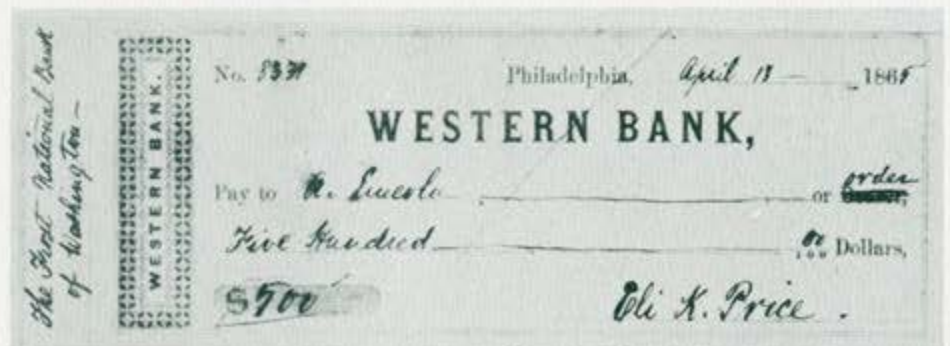 The First National Bank
of Washington —
WESTERN BANK.
No. 8371 Philadelphia, April 13 — 1865
WESTERN BANK,
Pay to A. Lincoln or order
Five Hundred 00/100 Dollars,
$500
Eli K. Price.